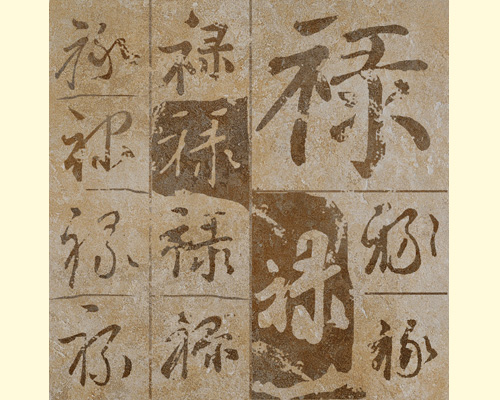 禄
禄
禄
禄
禄
禄
禄
禄
禄
禄
禄
禄